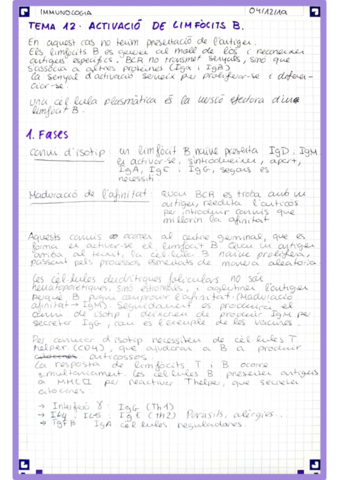 IMMUNOLOGIA 04/12/19
TEMA 12. ACTIVACIÓ DE LIMFÒCITS B.
En aquest cas no tenim presentació de l'antigen.
Els limfòcits B es generen al moll de l'os i reconeixen
antígens específics. BCR no transmet senyals, sinó que
s'associa a altres proteïnes (Igα i Igβ)
la senyal d'activació serveix per proliferar-se i diferen-
ciar-se.
una cel·lula plasmàtica és la versió efectora d'un
limfòcit B.
1. Fases
Canvi d'isotip: un limfòcit B naïve presenta IgD i IgM
és activar-se. s'introdueixen, apart,
IgA, IgE i IgG, segons es
necessiti
Maduració de l'afinitat: Quan BCR es troba amb un
antigen, reedita l'anticòs
per introduir canvis que
millorin la afinitat.
Aquests canvis ocorren al centre germinal, que es
forma en activar-se el limfòcit B. Quan un antigen
arriba al teixit, la cèl·lula B naïve prolifera,
passant pels processos esmentats de manera aleatòria.
Les cèl·lules dendrítiques fol·liculars no són
hematopoètiques, sinó estromals, i aglutinen l'antigen
perquè B pugui comprovar l'afinitat (maduració
afinitat → IgM). Seguidament es produeix el
canvi de isotip i deixen de produir IgM per
secretar IgG, com és l'exemple de les vacunes.
Per canviar d'isotip necessiten de cèl·lules T
helper (CD4), que ajudaran a B a produir
anticossos.
La resposta de limfòcits T i B ocorre
simultàniament. les cèl·lules B presenten antígens
a MHCII per reactivar Thelper, que secreta
citocines
→ Interferó γ: IgG (Th1)
→ IL4, IL5: IgE (Th2) Paràsits, al·lèrgies...
→ TGFβ: IgA cèl·lules reguladores.